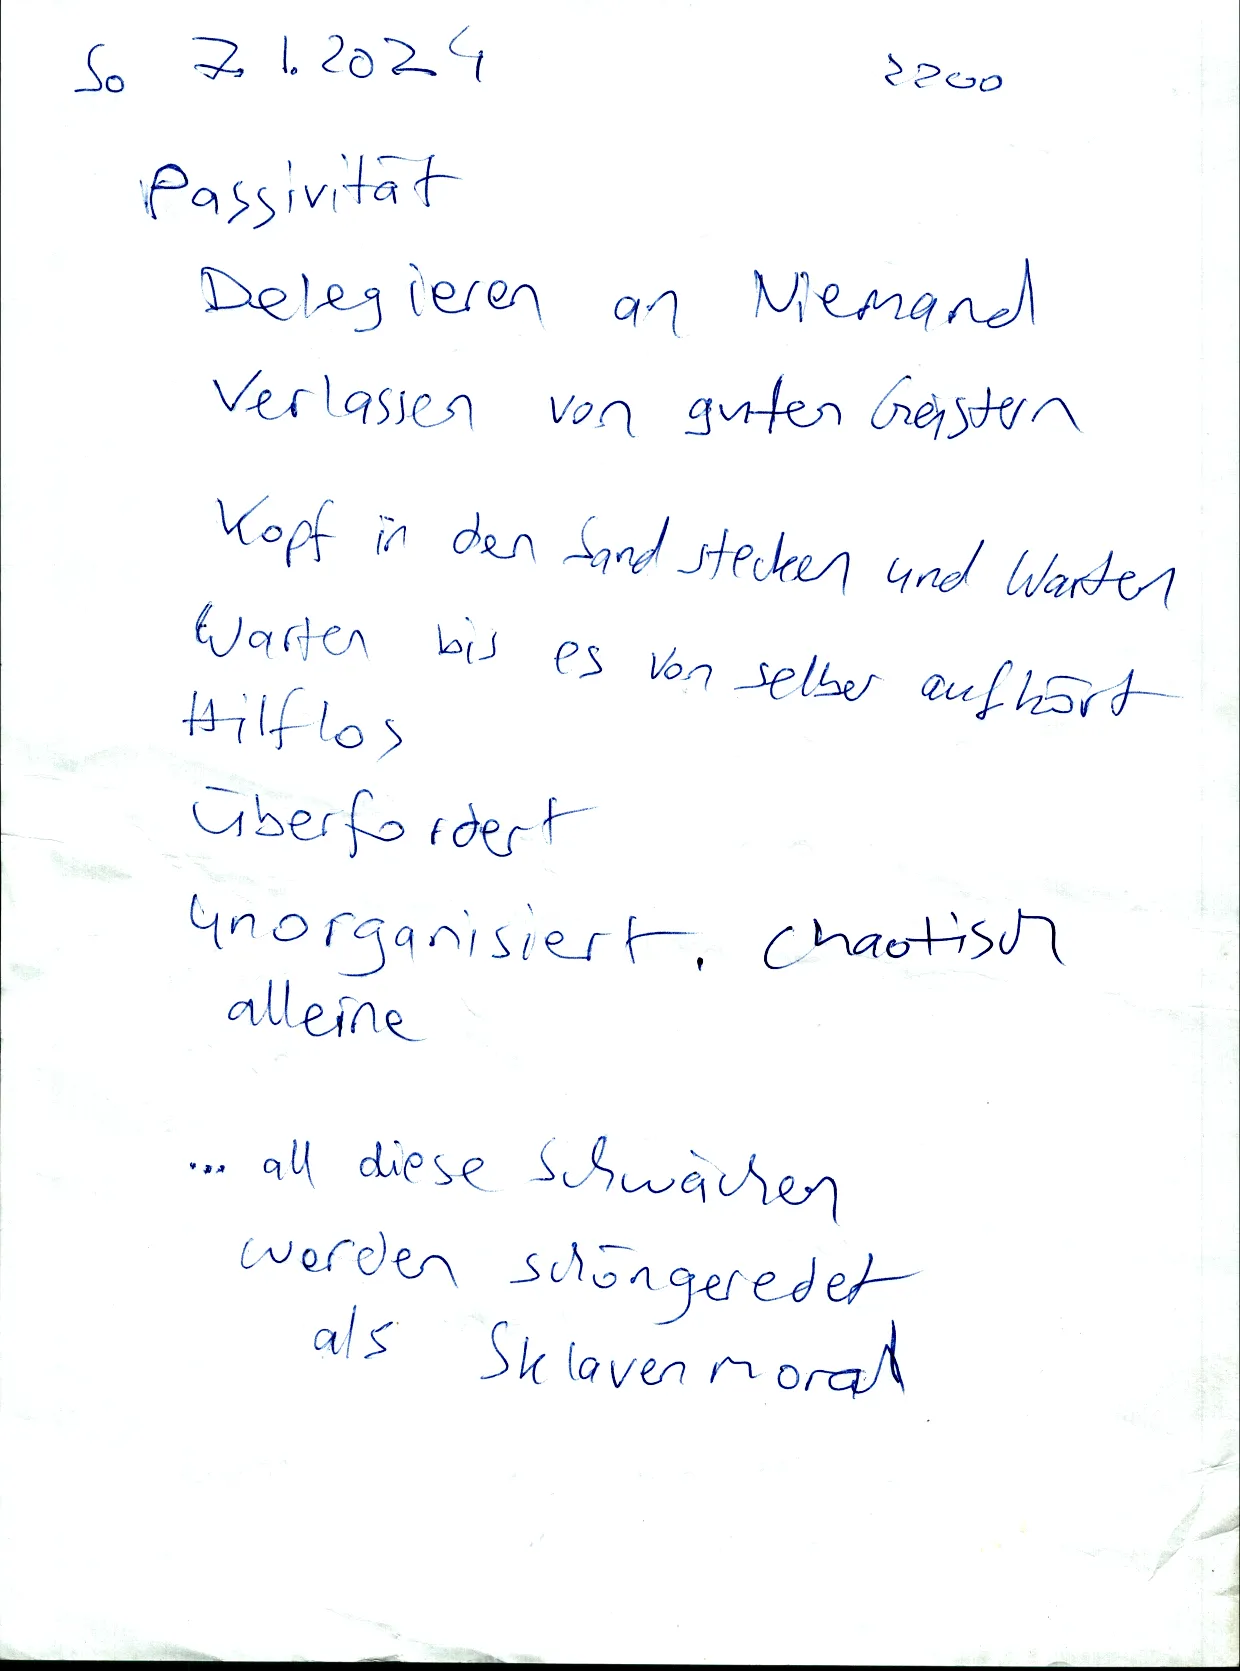 So 7.1.2024 2200
Passivität
Delegieren an Niemand
Verlassen von guten Geistern
Kopf in den Sand stecken und Warten
Warten bis es von selber aufhört
Hilflos
überfordert
unorganisiert, chaotisch
alleine
... all diese Schwächen
werden schöngeredet
als Sklavenmoral